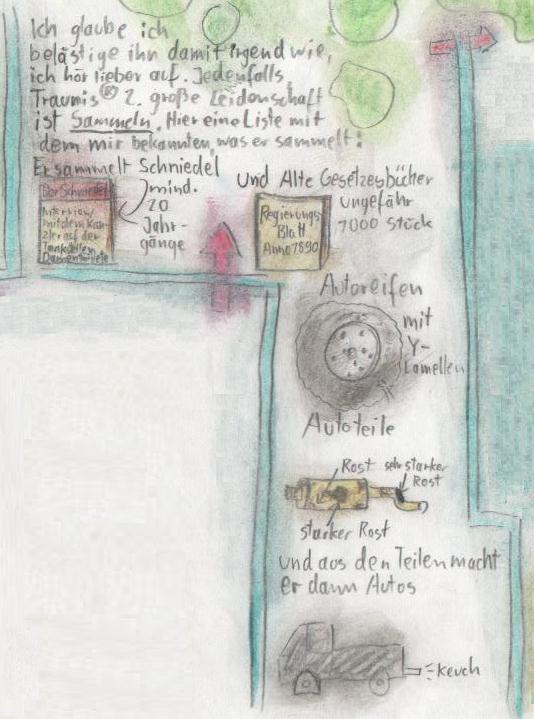 Ich glaube ich
belästige ihn damit irgendwie,
ich hör lieber auf. Jedenfalls
Traumis® 2. große Leidenschaft
ist Sammeln. Hier eine Liste mit
dem mir bekannten, was er sammelt:
Er sammelt Schniedel
mind.
20
Jahr-
gänge
Der Schniedel
Interview
mit dem Kan-
zler auf der
Tankstellen
Damentoilette
und Alte Gesetzesbücher
ungefähr
7000 Stück
Regierungs
Blatt
Anno 1890
Autoreifen
mit
Y-
Lamellen
Autoteile
Rost sehr starker
Rost
starker Rost
und aus den Teilen macht
er dann Autos
keuch